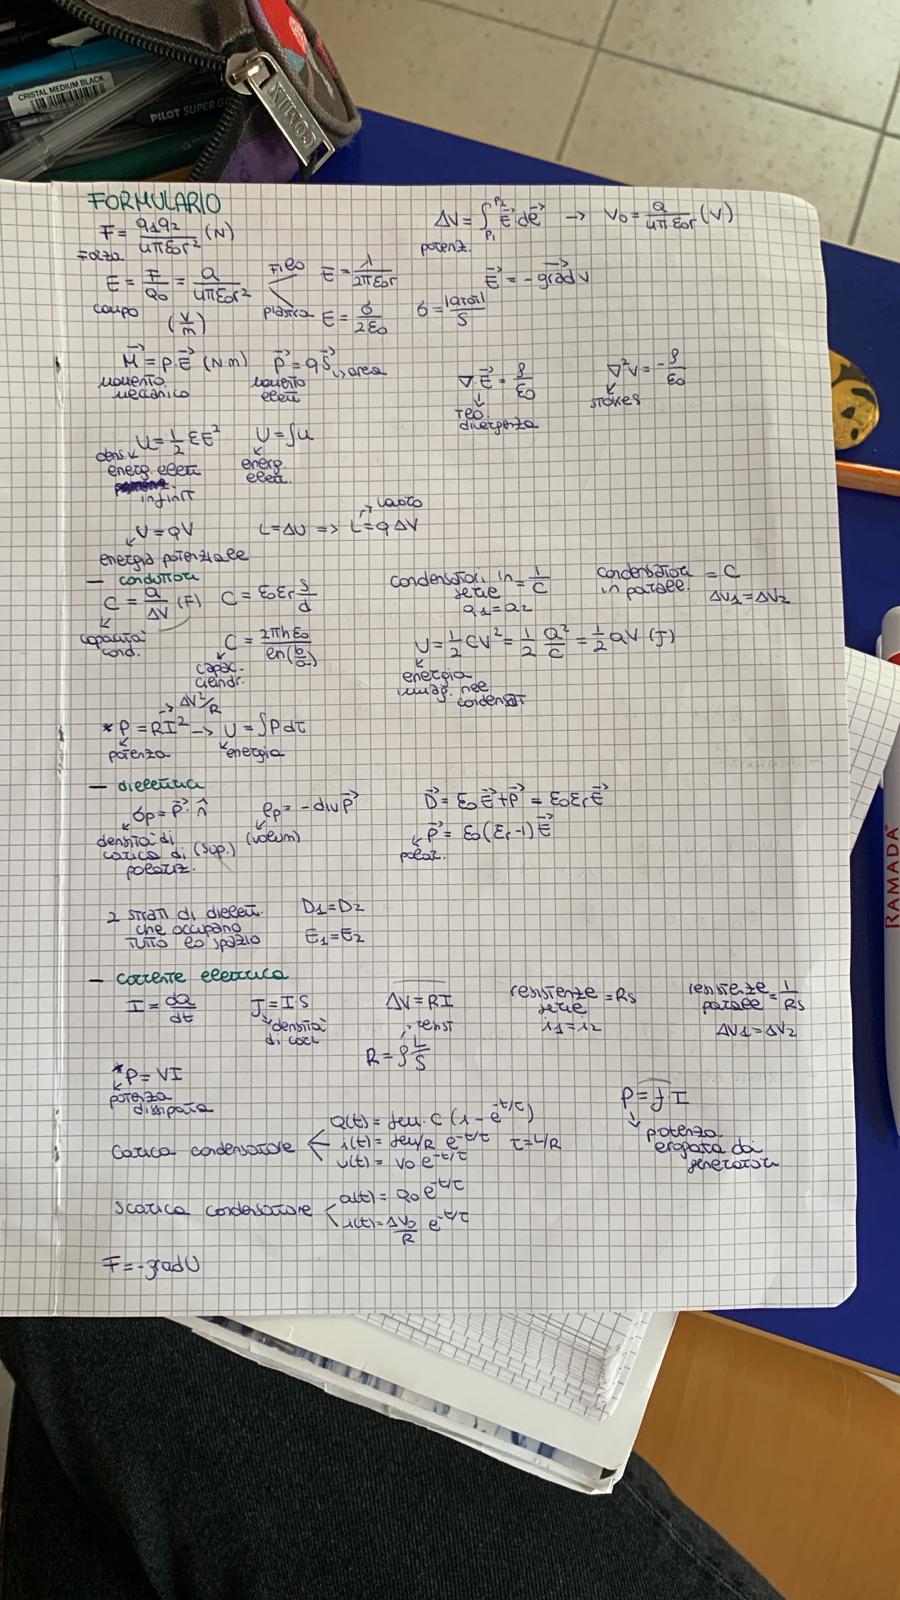 CRISTAL MEDIUM BLACK
PILOT SUPER G
COMIX
FORMULARIO
F = q1q2 / 4πε0r² (N)
Forza
ΔV = ∫P1P2 E⃗ de⃗ → V0 = Q / 4πε0r (V)
potenz.
E = F/Q0 = Q / 4πε0r²
campo (V/m)
Filo E = λ / 2πε0r
piastra E = σ / 2ε0
σ = |qtot| / S
E⃗ = -grad V
M⃗ = p·E⃗ (N·m) p⃗ = qS⃗ → area
momento meccanico
momento elett
∇·E⃗ = ρ/ε0
teo. divergenza
∇²V = -ρ/ε0
stokes
U = 1/2 εE² U = ∫u
dens. energ. elett
infinit
energ elett.
U = qV L = ΔU => L = qΔV → lavoro
energia potenziale
— conduttori
C = Q/ΔV (F) C = ε0εr S/d
capacità cond.
condensatori in serie = 1/C
q1 = q2
condensatori in parall. = C
ΔV1 = ΔV2
C = 2πhε0 / ln(b/a)
capac. cilindr.
U = 1/2 CV² = 1/2 Q²/C = 1/2 QV (J)
energia
condensat
→ ΔV²/R
* P = RI² → U = ∫P dt
potenza energia
— dielettrici
σp = P⃗·n̂ ρp = -div P⃗
densità di carica di polariz. (sup.) (volum)
D⃗ = ε0E⃗ + P⃗ = ε0εrE⃗
P⃗ = ε0(εr-1)E⃗
polar.
2 strati di dielett. che occupano tutto lo spazio
D1 = D2
E1 = E2
— corrente elettrica
I = dQ/dt J = I·S
densità di corr
ΔV = RI
resist
R = ρ L/S
resistenze serie = Rs
i1 = i2
resistenze parall = 1/Rs
ΔV1 = ΔV2
* P = VI
potenza dissipata
P = f I
potenza erogata dai generatori
Carica condensatore
Q(t) = fem · C (1 - e^-t/τ)
i(t) = fem/R e^-t/τ τ = L/R
v(t) = V0 e^-t/τ
Scarica condensatore
Q(t) = Q0 e^-t/τ
i(t) = ΔV0/R e^-t/τ
F = -grad U
RAMADA